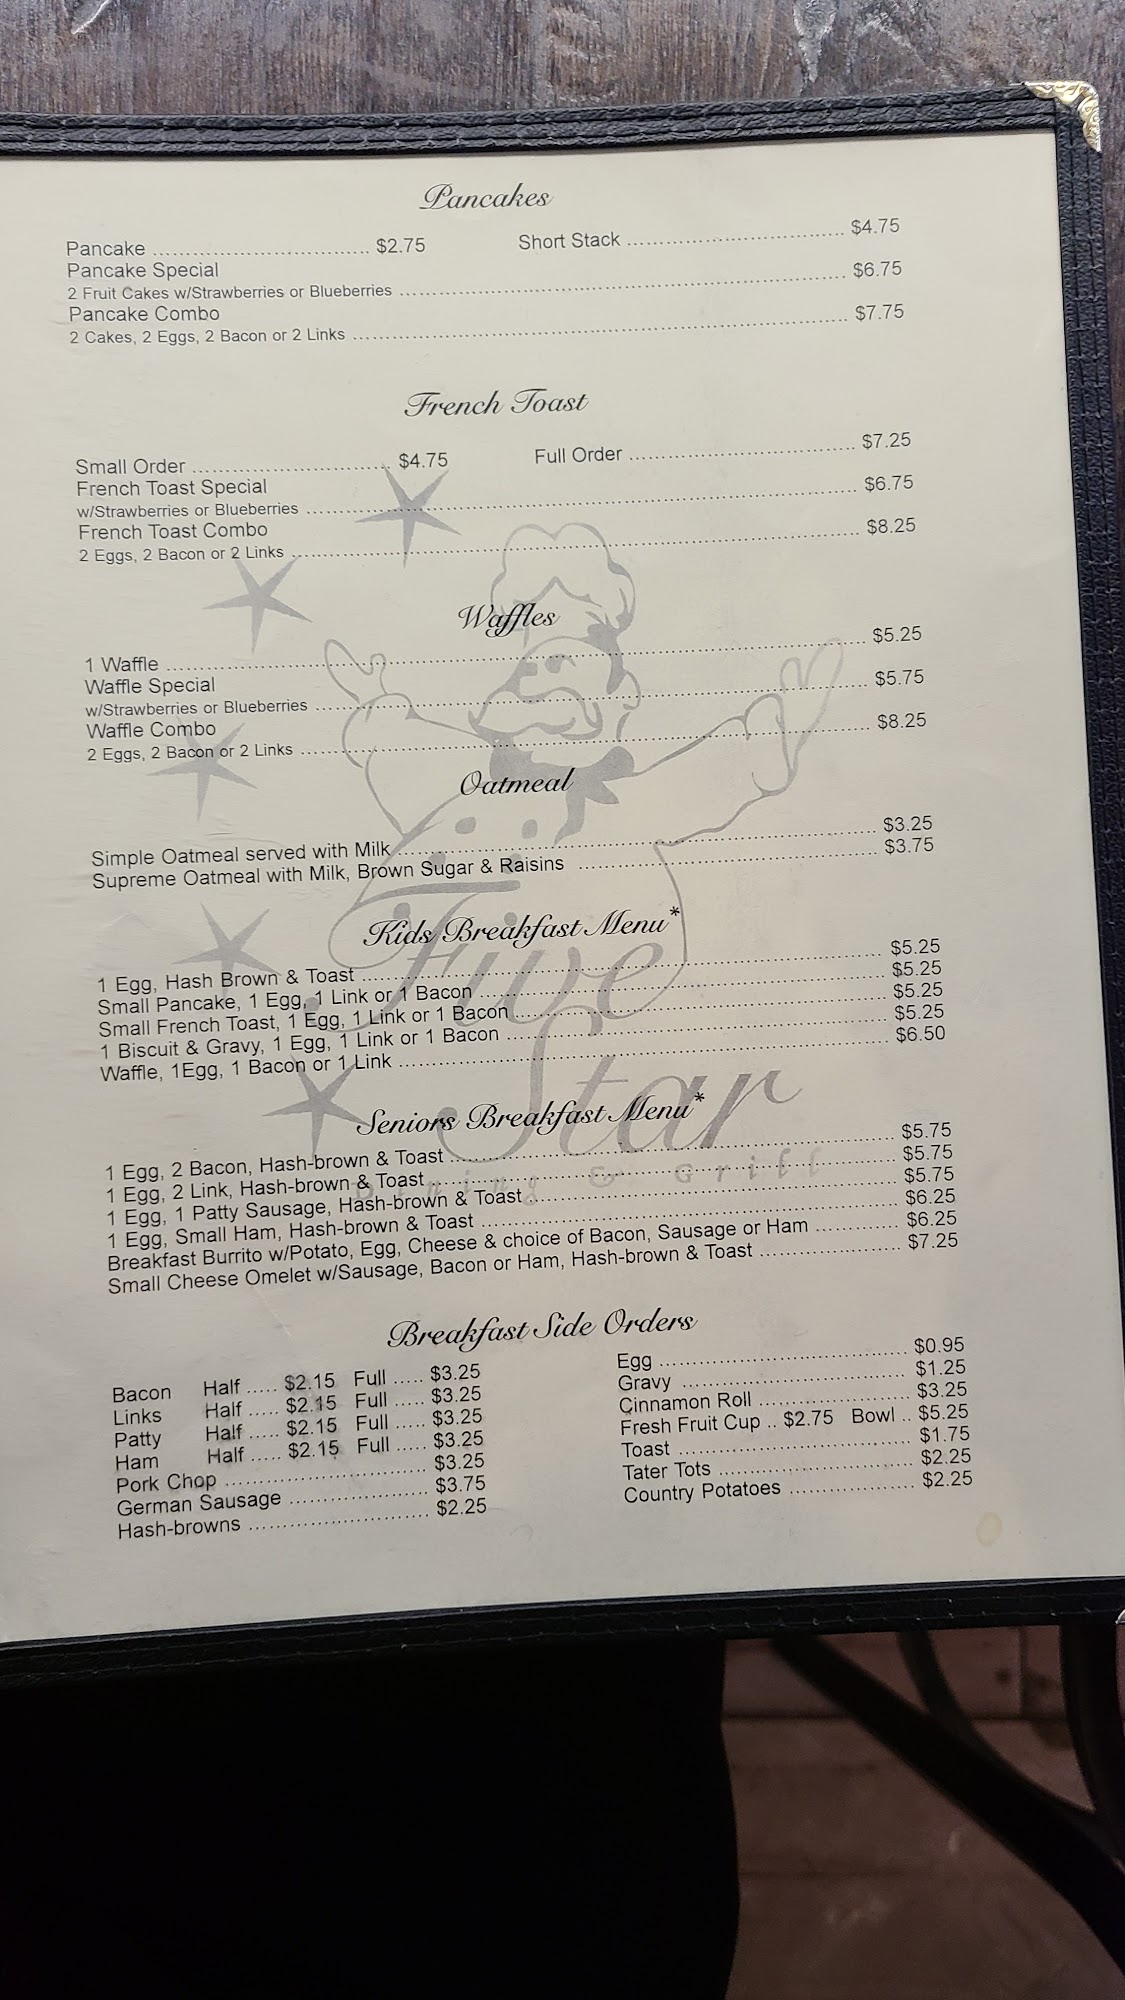 Pancakes
Pancake ................................ $2.75 Short Stack ................................ $4.75
Pancake Special
2 Fruit Cakes w/Strawberries or Blueberries ................................ $6.75
Pancake Combo
2 Cakes, 2 Eggs, 2 Bacon or 2 Links ................................ $7.75
French Toast
Small Order ................................ $4.75 Full Order ................................ $7.25
French Toast Special
w/Strawberries or Blueberries ................................ $6.75
French Toast Combo
2 Eggs, 2 Bacon or 2 Links ................................ $8.25
Waffles
1 Waffle ................................ $5.25
Waffle Special
w/Strawberries or Blueberries ................................ $5.75
Waffle Combo
2 Eggs, 2 Bacon or 2 Links ................................ $8.25
Oatmeal
Simple Oatmeal served with Milk ................................ $3.25
Supreme Oatmeal with Milk, Brown Sugar & Raisins ................................ $3.75
Kids Breakfast Menu*
1 Egg, Hash Brown & Toast ................................ $5.25
Small Pancake, 1 Egg, 1 Link or 1 Bacon ................................ $5.25
Small French Toast, 1 Egg, 1 Link or 1 Bacon ................................ $5.25
1 Biscuit & Gravy, 1 Egg, 1 Link or 1 Bacon ................................ $5.25
Waffle, 1Egg, 1 Bacon or 1 Link ................................ $6.50
Five
Star
Dining & Grill
Seniors Breakfast Menu*
1 Egg, 2 Bacon, Hash-brown & Toast ................................ $5.75
1 Egg, 2 Link, Hash-brown & Toast ................................ $5.75
1 Egg, 1 Patty Sausage, Hash-brown & Toast ................................ $5.75
1 Egg, Small Ham, Hash-brown & Toast ................................ $6.25
Breakfast Burrito w/Potato, Egg, Cheese & choice of Bacon, Sausage or Ham ............ $6.25
Small Cheese Omelet w/Sausage, Bacon or Ham, Hash-brown & Toast .................... $7.25
Breakfast Side Orders
Bacon Half ..... $2.15 Full ..... $3.25
Links Half ..... $2.15 Full ..... $3.25
Patty Half ..... $2.15 Full ..... $3.25
Ham Half ..... $2.15 Full ..... $3.25
Pork Chop ................................ $3.25
German Sausage ...................... $3.75
Hash-browns ............................ $2.25
Egg ................................ $0.95
Gravy ................................ $1.25
Cinnamon Roll ........................ $3.25
Fresh Fruit Cup .. $2.75 Bowl .. $5.25
Toast ................................ $1.75
Tater Tots ............................ $2.25
Country Potatoes .................... $2.25